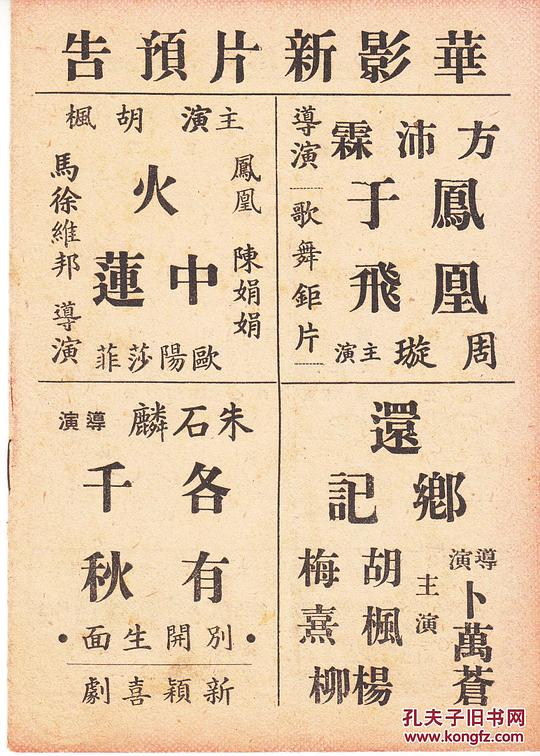 華影新片預告
方沛霖
導演
鳳凰
于飛
歌舞鉅片
周璇主演
主演 胡楓
鳳凰
陳娟娟
火
中蓮
歐陽莎菲
馬徐維邦 導演
還
鄉記
導演
卜萬蒼
主演
胡楓
梅熹
楊柳
朱石麟 導演
各有
千秋
•別開生面•
新穎喜劇
孔夫子旧书网
www.kongfz.com